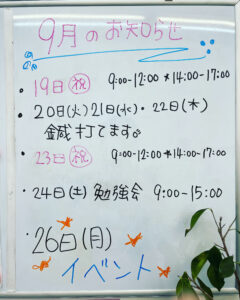 9月のお知らせ
・19日㊗ 9:00-12:00 * 14:00-17:00
・20日(火)21日(水)・22日(木)
鍼打てます。
・23日㊗ 9:00-12:00 * 14:00-17:00
・24日(土) 勉強会 9:00~15:00
・26日(月)
イベント